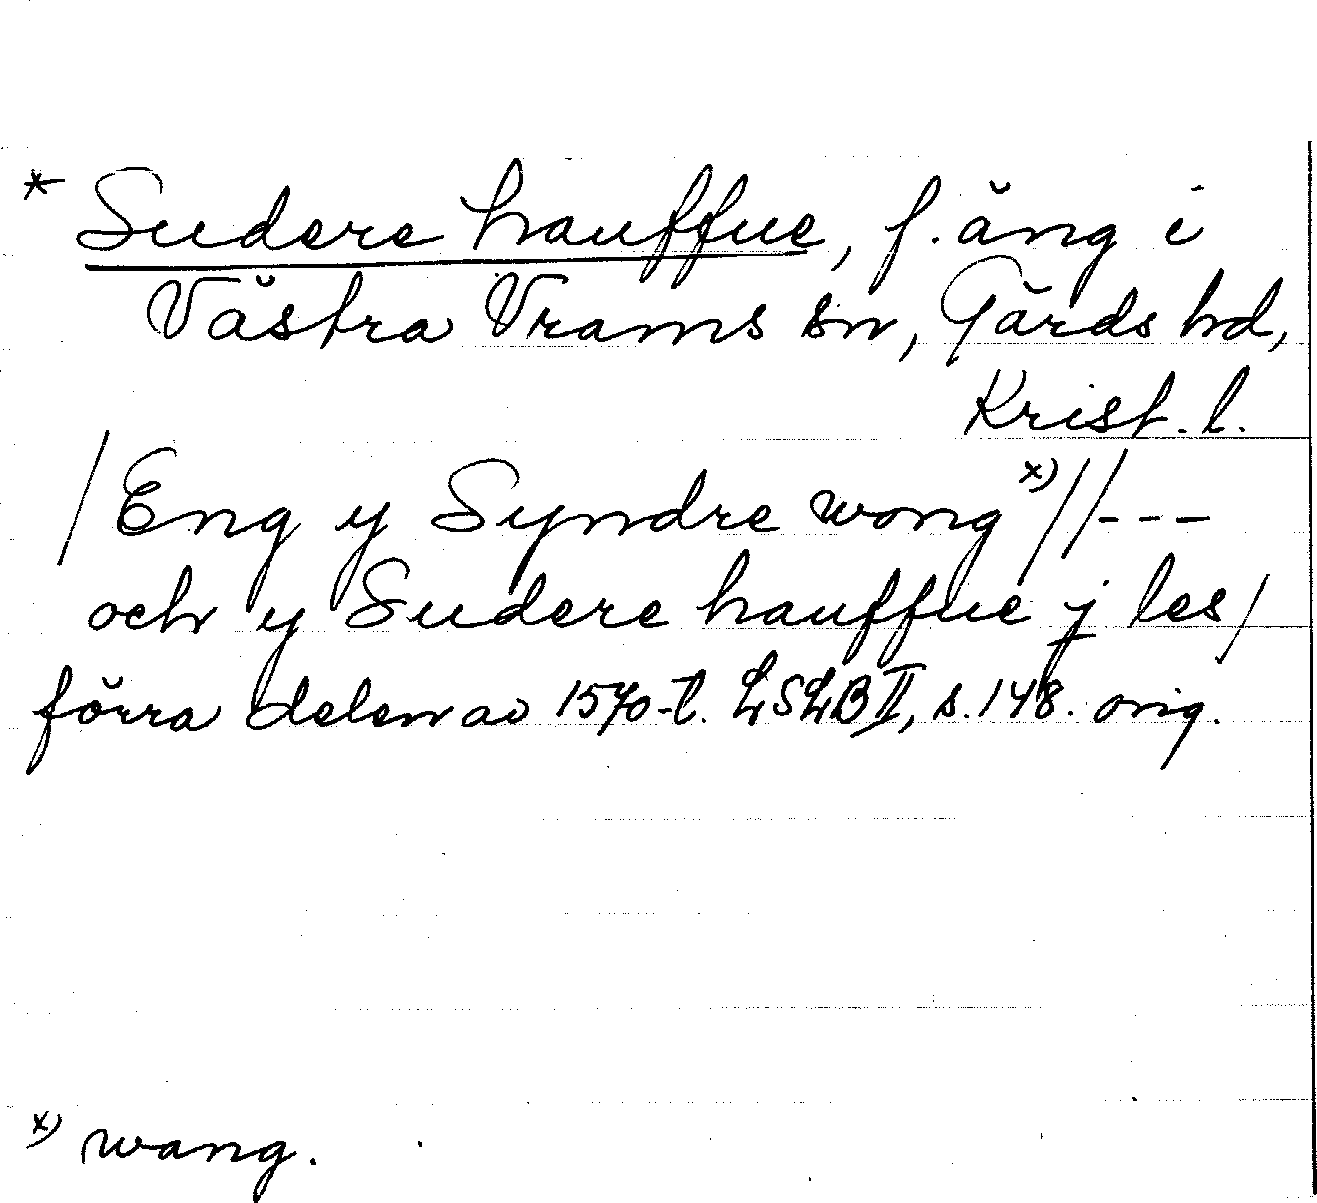 * Sudere hauffue, f. äng i
Västra Vrams sn, Gärds hd,
Krist. l.
/Eng y Syndre wong x)//---
och y Sudere hauffue j les/
förra delen av 1570-t. LSLB II, s. 148. orig.
x) wang.